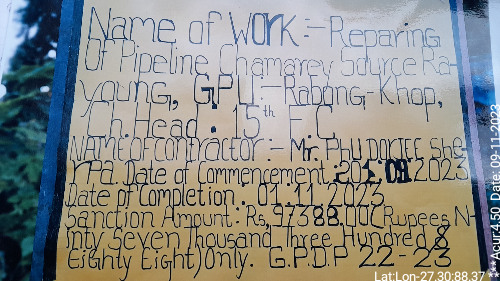 Name of WORK :- Reparing
Of Pipeline Chamarey Source Ra-
young, GPU :- Rabong-Khop,
Ch. Head. 15th F.C
NAME OF contractor :- Mr. PHU DORJEE She-
rpa. Date of Commencement 09.2023
Date of Completion. 01.11.2023
Sanction Amount: Rs, 97388.00(Rupees N-
inty Seven Thousand Three Hundred &
Eighty Eight) Only. G.P.D.P 22-23
Lat:Lon-27.30:88.37
***Acur:4.50, Date:09-11-2023